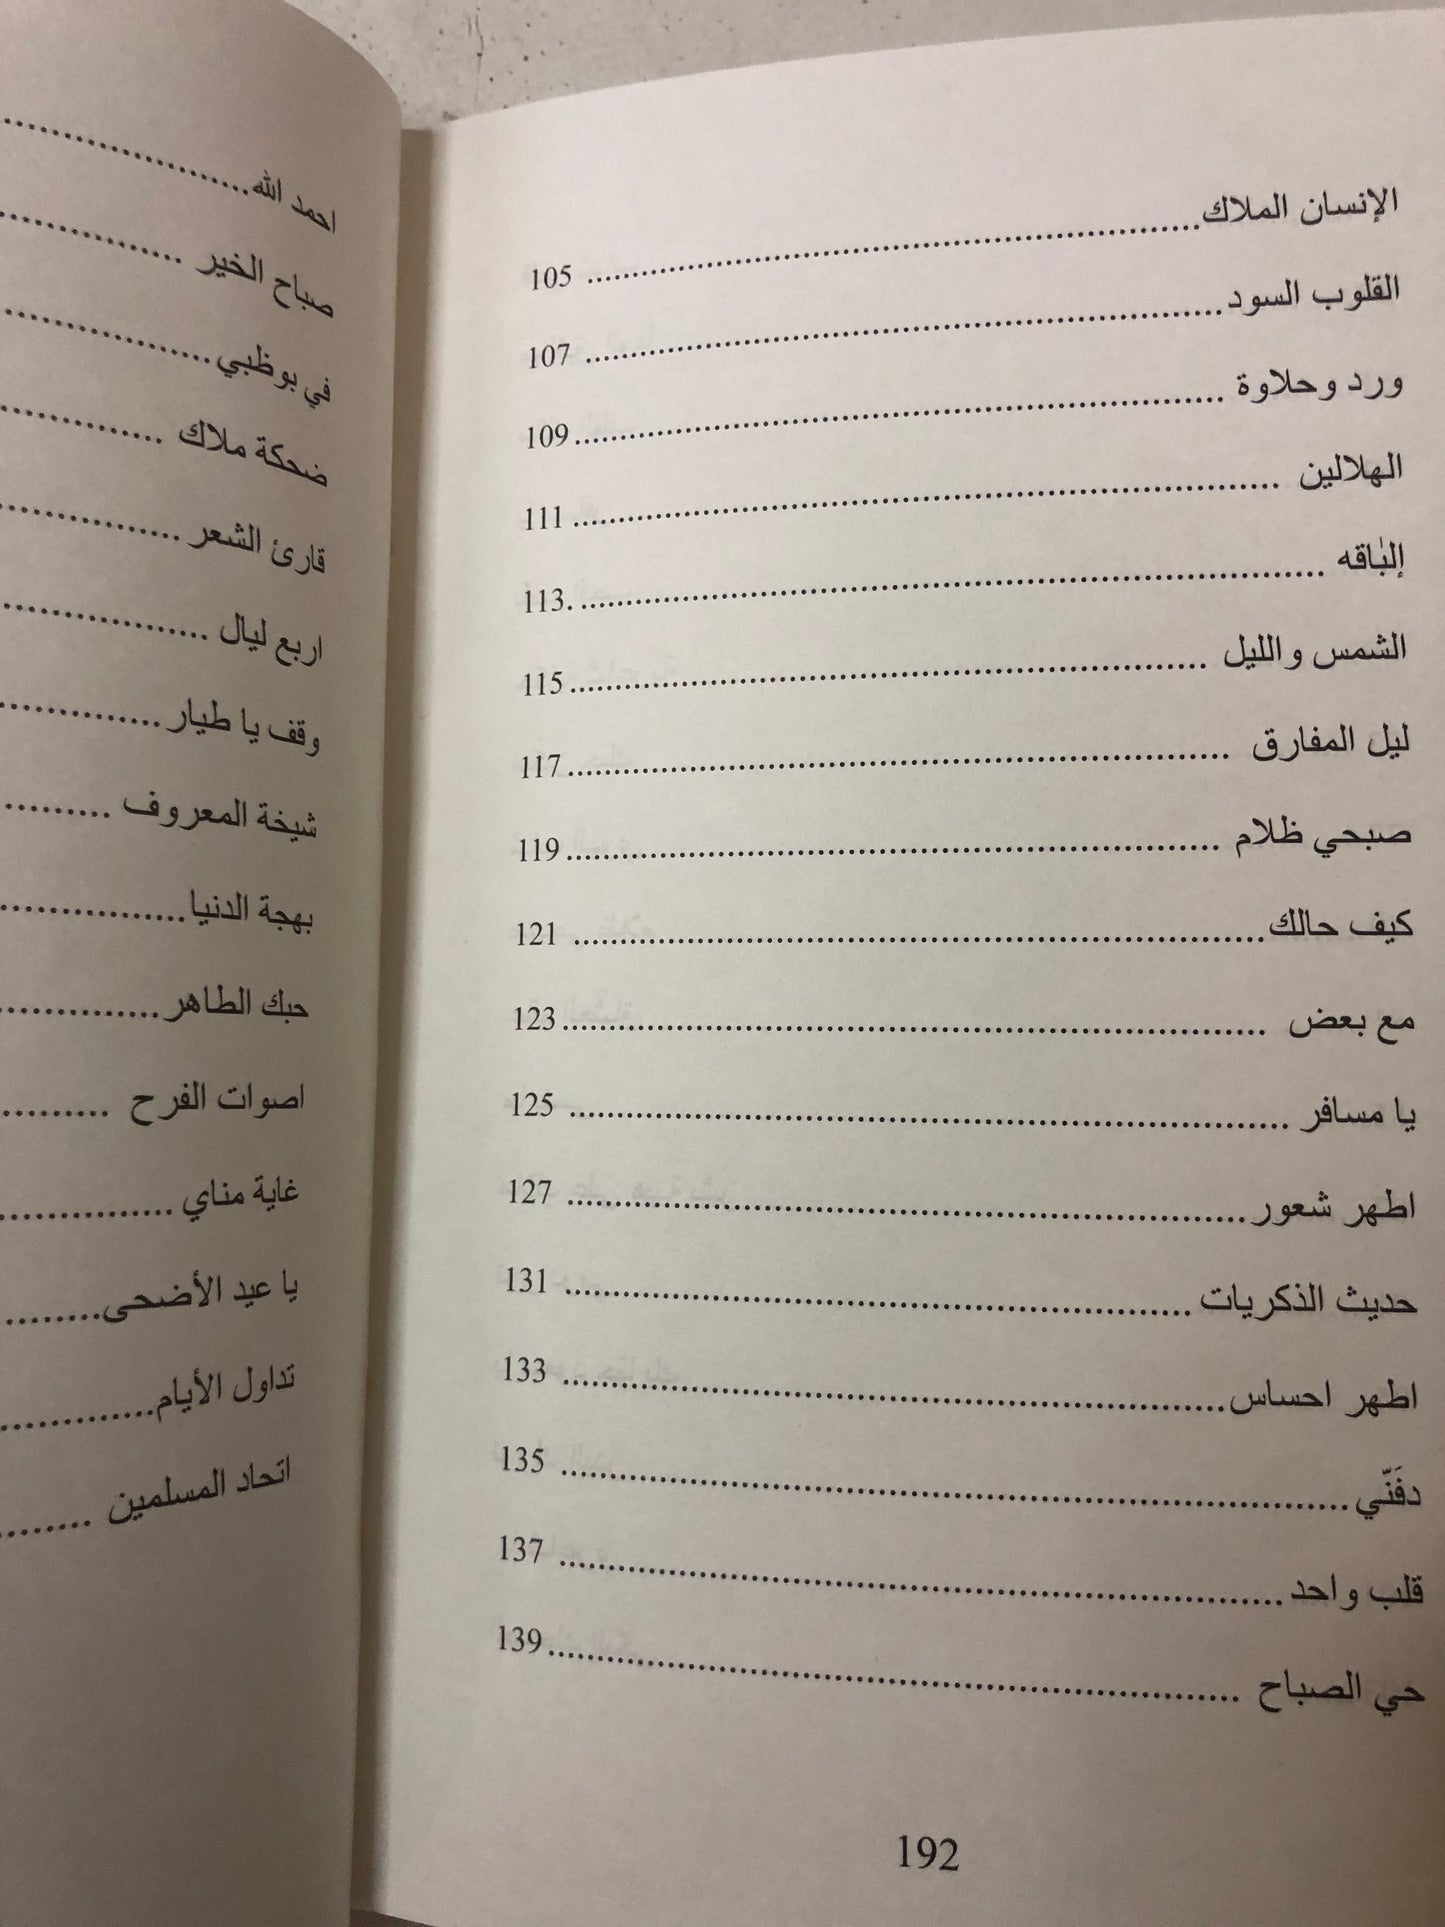 الإنسان الملاك.......................................................... 105
القلوب السود.......................................................... 107
ورد وحلاوة ..........................................................109
الهلالين ..........................................................111
إلبٰاقه ...........................................................113
الشمس والليل ..........................................................115
ليل المفارق ..........................................................117
صبحي ظلام ..........................................................119
كيف حالك.......................................................... 121
مع بعض ..........................................................123
يا مسافر .......................................................... 125
اطهر شعور.......................................................... 127
حديث الذكريات.......................................................... 131
اطهر احساس.......................................................... 133
دفَنّي.......................................................... 135
قلب واحد.......................................................... 137
حي الصباح ..........................................................139
192
احمد الله......................
صباح الخير ..................
في بوظبي......................
ضحكة ملاك ..................
قارئ الشعر ..................
اربع ليال ......................
وقف يا طيار..................
شيخة المعروف .........
بهجة الدنيا..................
حبك الطاهر..................
اصوات الفرح .........
غاية مناي..................
يا عيد الأضحى.........
تداول الأيام.............
اتحاد المسلمين .........